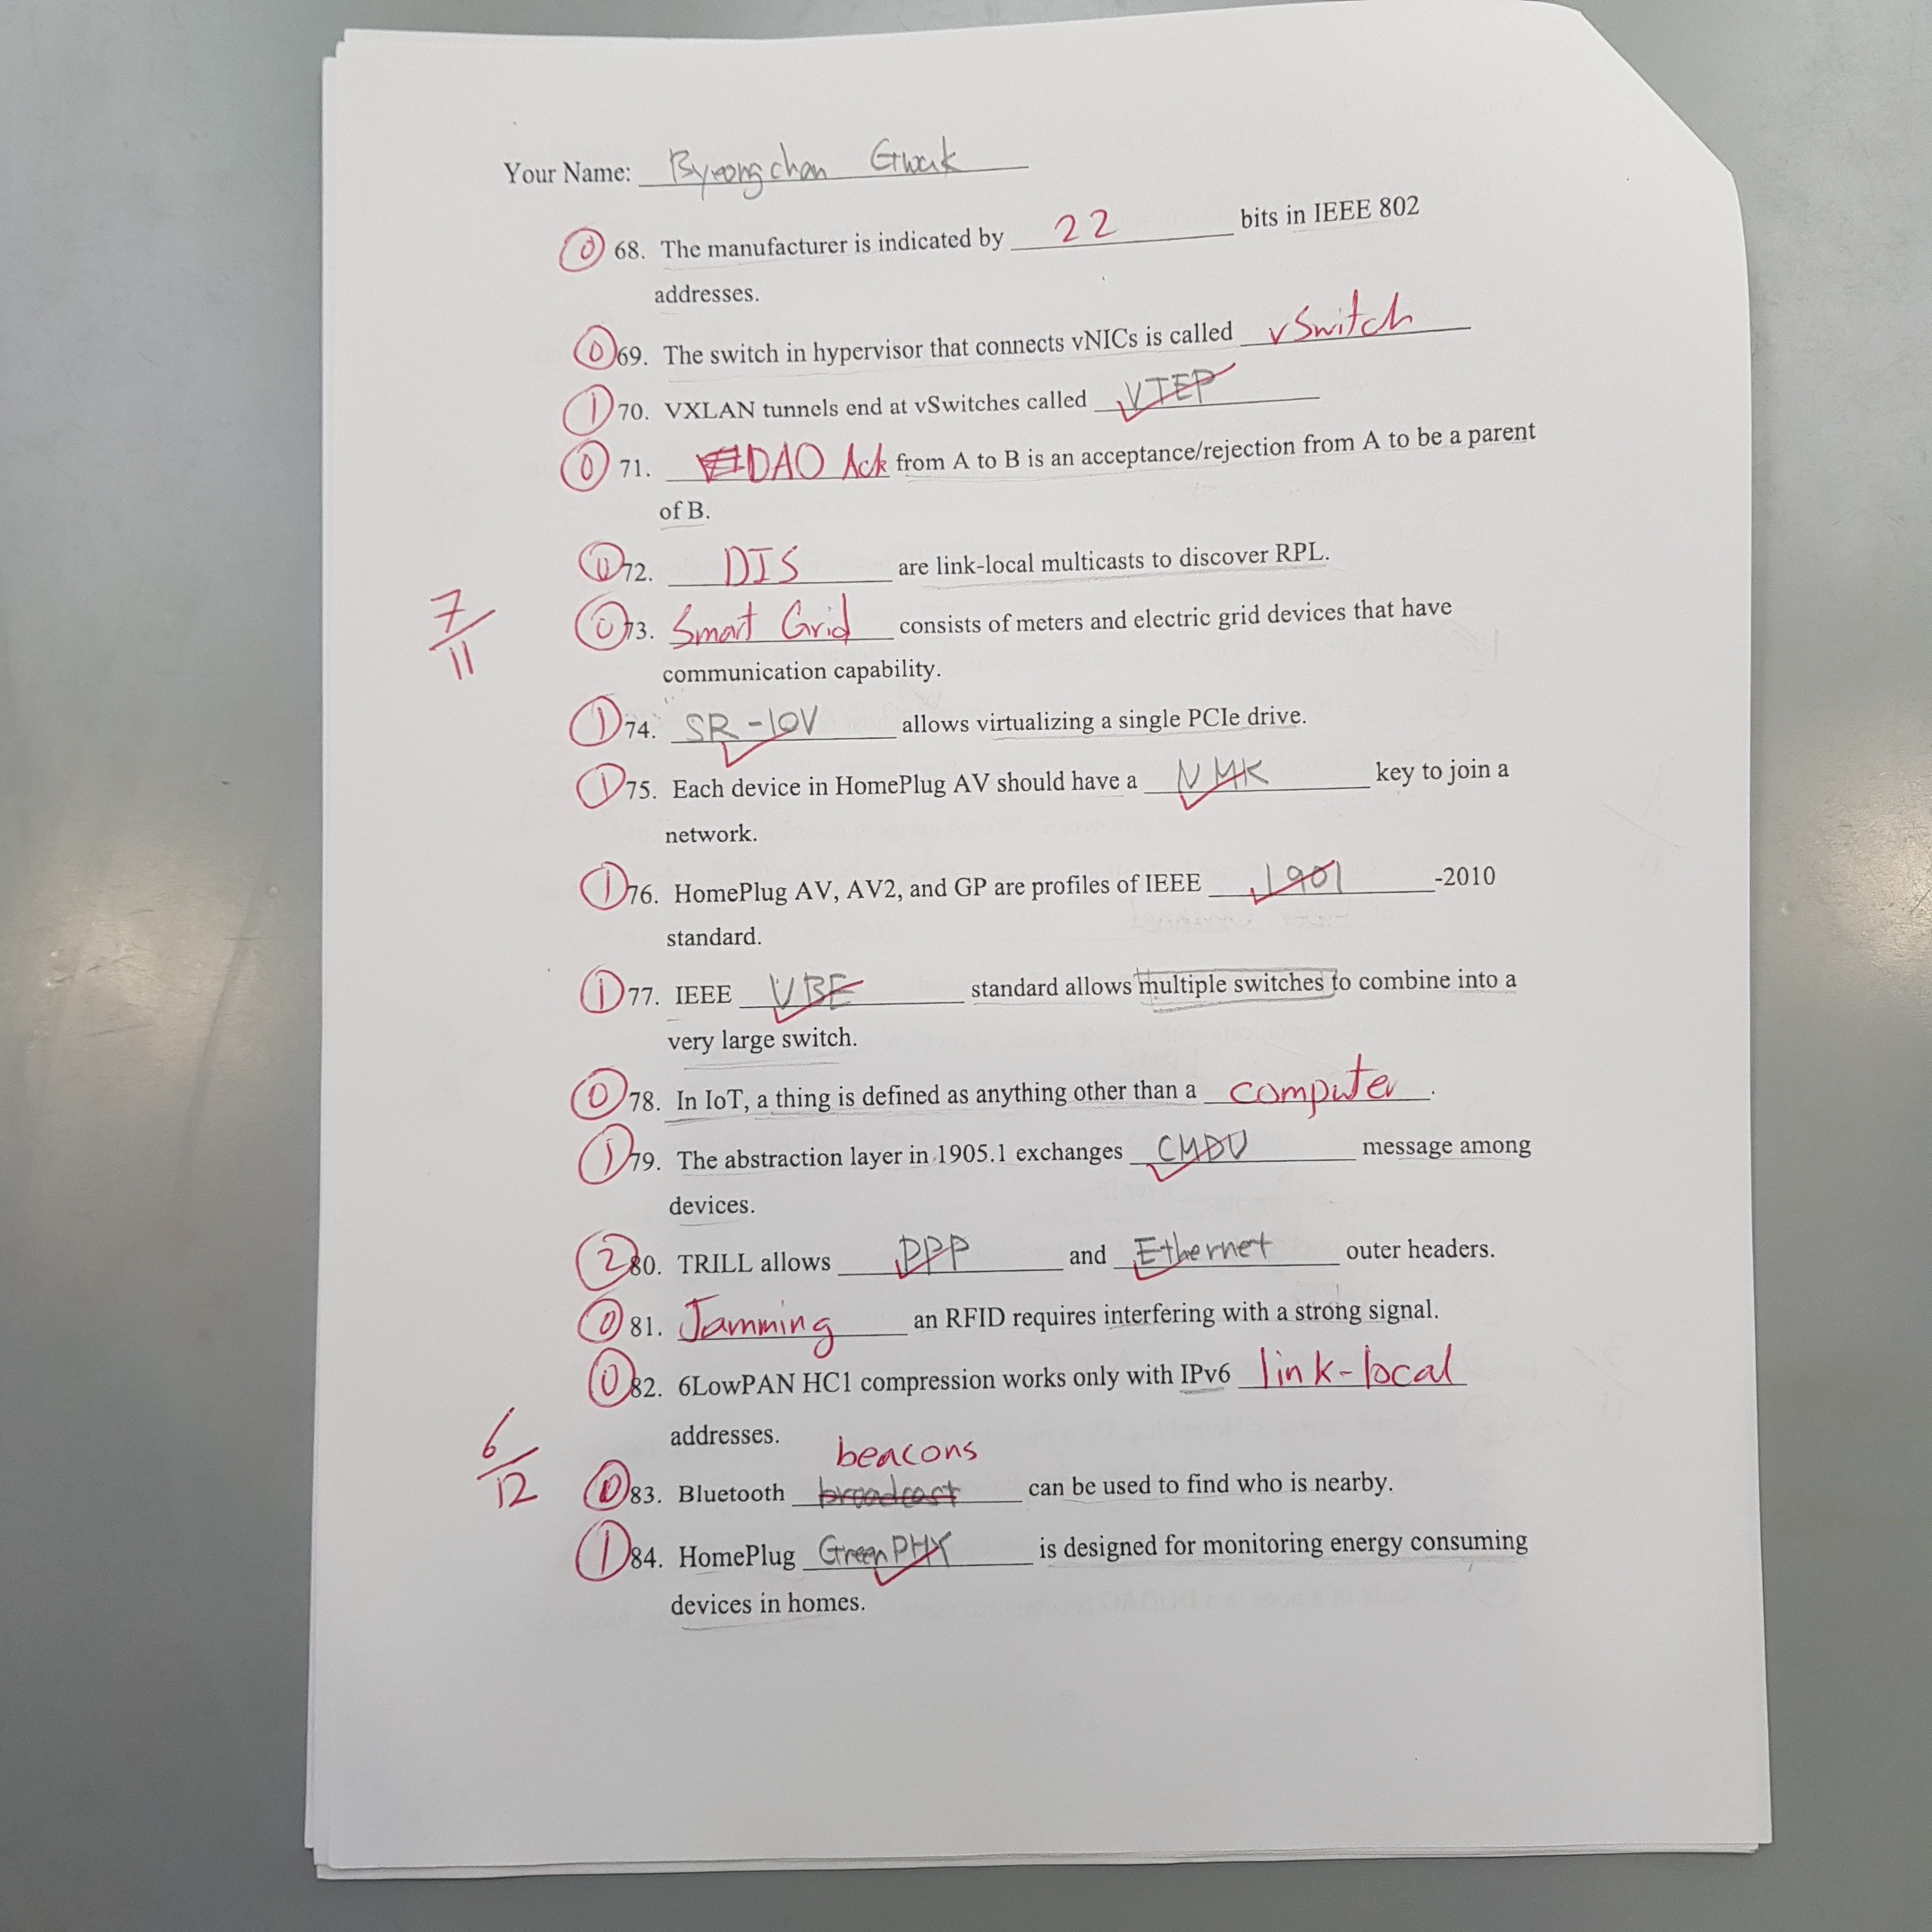 Your Name: Byeongchan Gwak
0 68. The manufacturer is indicated by 22 bits in IEEE 802
addresses.
0 69. The switch in hypervisor that connects vNICs is called vSwitch
1 70. VXLAN tunnels end at vSwitches called VTEP
0 71. DAO Ack from A to B is an acceptance/rejection from A to be a parent
of B.
0 72. DIS are link-local multicasts to discover RPL.
7/11
0 73. Smart Grid consists of meters and electric grid devices that have
communication capability.
1 74. SR-IOV allows virtualizing a single PCIe drive.
1 75. Each device in HomePlug AV should have a NMK key to join a
network.
1 76. HomePlug AV, AV2, and GP are profiles of IEEE 1901 -2010
standard.
1 77. IEEE VBE standard allows multiple switches to combine into a
very large switch.
0 78. In IoT, a thing is defined as anything other than a computer.
1 79. The abstraction layer in 1905.1 exchanges CMDU message among
devices.
2 80. TRILL allows PPP and Ethernet outer headers.
0 81. Jamming an RFID requires interfering with a strong signal.
0 82. 6LowPAN HC1 compression works only with IPv6 link-local
addresses.
beacons
6/12
0 83. Bluetooth broadcast can be used to find who is nearby.
1 84. HomePlug GreenPHY is designed for monitoring energy consuming
devices in homes.